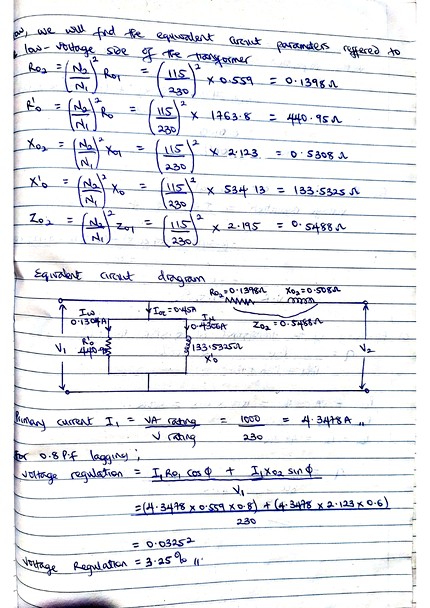 ow, we will find the equivalent circuit parameters reffered to
low-voltage side of the transformer
R02 = (N2/N1)² R01 = (115/230)² × 0.559 = 0.1398Ω
R'o = (N2/N1)² Ro = (115/230)² × 1763.8 = 440.95Ω
X02 = (N2/N1)² X01 = (115/230)² × 2.123 = 0.5308Ω
X'o = (N2/N1)² Xo = (115/230)² × 534.13 = 133.5325Ω
Z02 = (N2/N1)² Z01 = (115/230)² × 2.195 = 0.5488Ω
Equivalent circuit diagram
R02=0.1398Ω X02=0.508Ω
Iw Ioc=0.45A Iμ
0.1304A 0.4306A Z02 = 0.5488Ω
V1 R'o 133.5325Ω V2
440.95 X'o
Primary current I1 = VA rating / V rating = 1000 / 230 = 4.3478A "
For 0.8 P.f lagging;
Voltage regulation = I1R01 cos ϕ + I1X02 sin ϕ / V1
= (4.3478 × 0.559 × 0.8) + (4.3478 × 2.123 × 0.6) / 230
= 0.03252
Voltage Regulation = 3.25% "